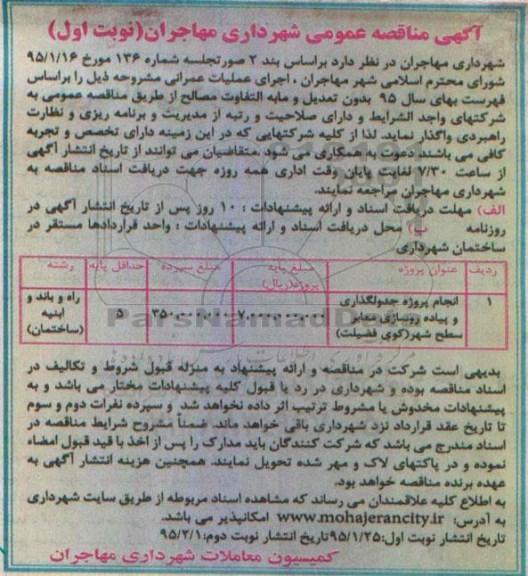 آگهی مناقصه عمومی شهرداری مهاجران(نوبت اول)
شهرداری مهاجران در نظر دارد براساس بند ۲ صورتجلسه شماره ۱۳۶ مورخ ۹۵/۱/۱۶
شورای محترم اسلامی شهر مهاجران ، اجرای عملیات عمرانی مشروحه ذیل را براساس
فهرست بهای سال ۹۵ بدون تعدیل و مابه التفاوت مصالح از طریق مناقصه عمومی به
شرکتهای واجد الشرایط و دارای صلاحیت و رتبه از مدیریت و برنامه ریزی و نظارت
راهبردی واگذار نماید. لذا از کلیه شرکتهایی که در این زمینه دارای تخصص و تجربه
کافی می باشند دعوت به همکاری می شود متقاضیان می توانند از تاریخ انتشار آگهی
از ساعت ۷/۳۰ لغایت پایان وقت اداری همه روزه جهت دریافت اسناد مناقصه به
شهرداری مهاجران مراجعه نمایند.
الف) مهلت دریافت اسناد و ارائه پیشنهادات : ۱۰ روز پس از تاریخ انتشار آگهی در
روزنامه ب) محل دریافت اسناد و ارائه پیشنهادات : واحد قراردادها مستقر در
ساختمان شهرداری
ردیف عنوان پروژه مبلغ پایه پروژه(ریال) مبلغ سپرده حداقل پایه رشته
۱ انجام پروژه جدولگذاری ۷۰۰۰۰۰۰۰۰۰ ۳۵۰۰۰۰۰۰۰ ۵ راه و باند و
و پیاده روسازی معابر ابنیه
سطح شهر(کوی فضیلت) (ساختمان)
ParsNamadData
بدیهی است شرکت در مناقصه و ارائه پیشنهاد به منزله قبول شروط و تکالیف در
اسناد مناقصه بوده و شهرداری در رد یا قبول کلیه پیشنهادات مختار می باشد و به
پیشنهادات مخدوش یا مشروط ترتیب اثر داده نخواهد شد و سپرده نفرات دوم و سوم
تا تاریخ عقد قرارداد نزد شهرداری باقی خواهد ماند. ضمناً مشروح شرایط مناقصه در
اسناد مندرج می باشد که شرکت کنندگان باید مدارک را پس از اخذ با قید قبول امضاء
نموده و در پاکتهای لاک و مهر شده تحویل نمایند. همچنین هزینه انتشار آگهی به
عهده برنده مناقصه خواهد بود.
به اطلاع کلیه علاقمندان می رساند که مشاهده اسناد مربوطه از طریق سایت شهرداری
به آدرس: www.mohajerancity.ir امکانپذیر می باشد.
تاریخ انتشار نوبت اول:۹۵/۱/۲۵ تاریخ انتشار نوبت دوم:۹۵/۲/۱
کمیسیون معاملات شهرداری مهاجران